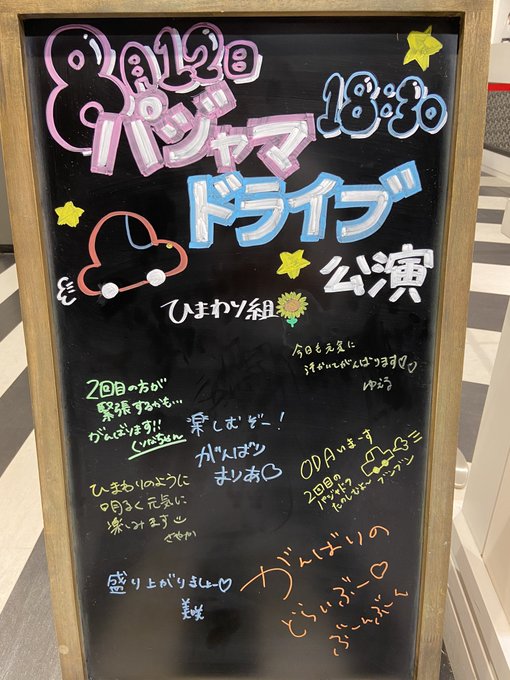 8月12日
18:30
パジャマ
ドライブ
公演
ひまわり組
今日も元気に
がんばります♡♡
ゆうる
2回目の方が
緊張するかも…
がんばります!!
くりなちゃん
楽しむぞー!
がんばり
まりあ♡
ODAいまーす
2回目の
パジャドラ
たのしむよ〜
ブンブン
ひまわりのように
明るく元気に
楽しみます
さやか
盛り上がりましょー♡
美咲
がんばりの
どらいぶー♡
ぶーんぶーん